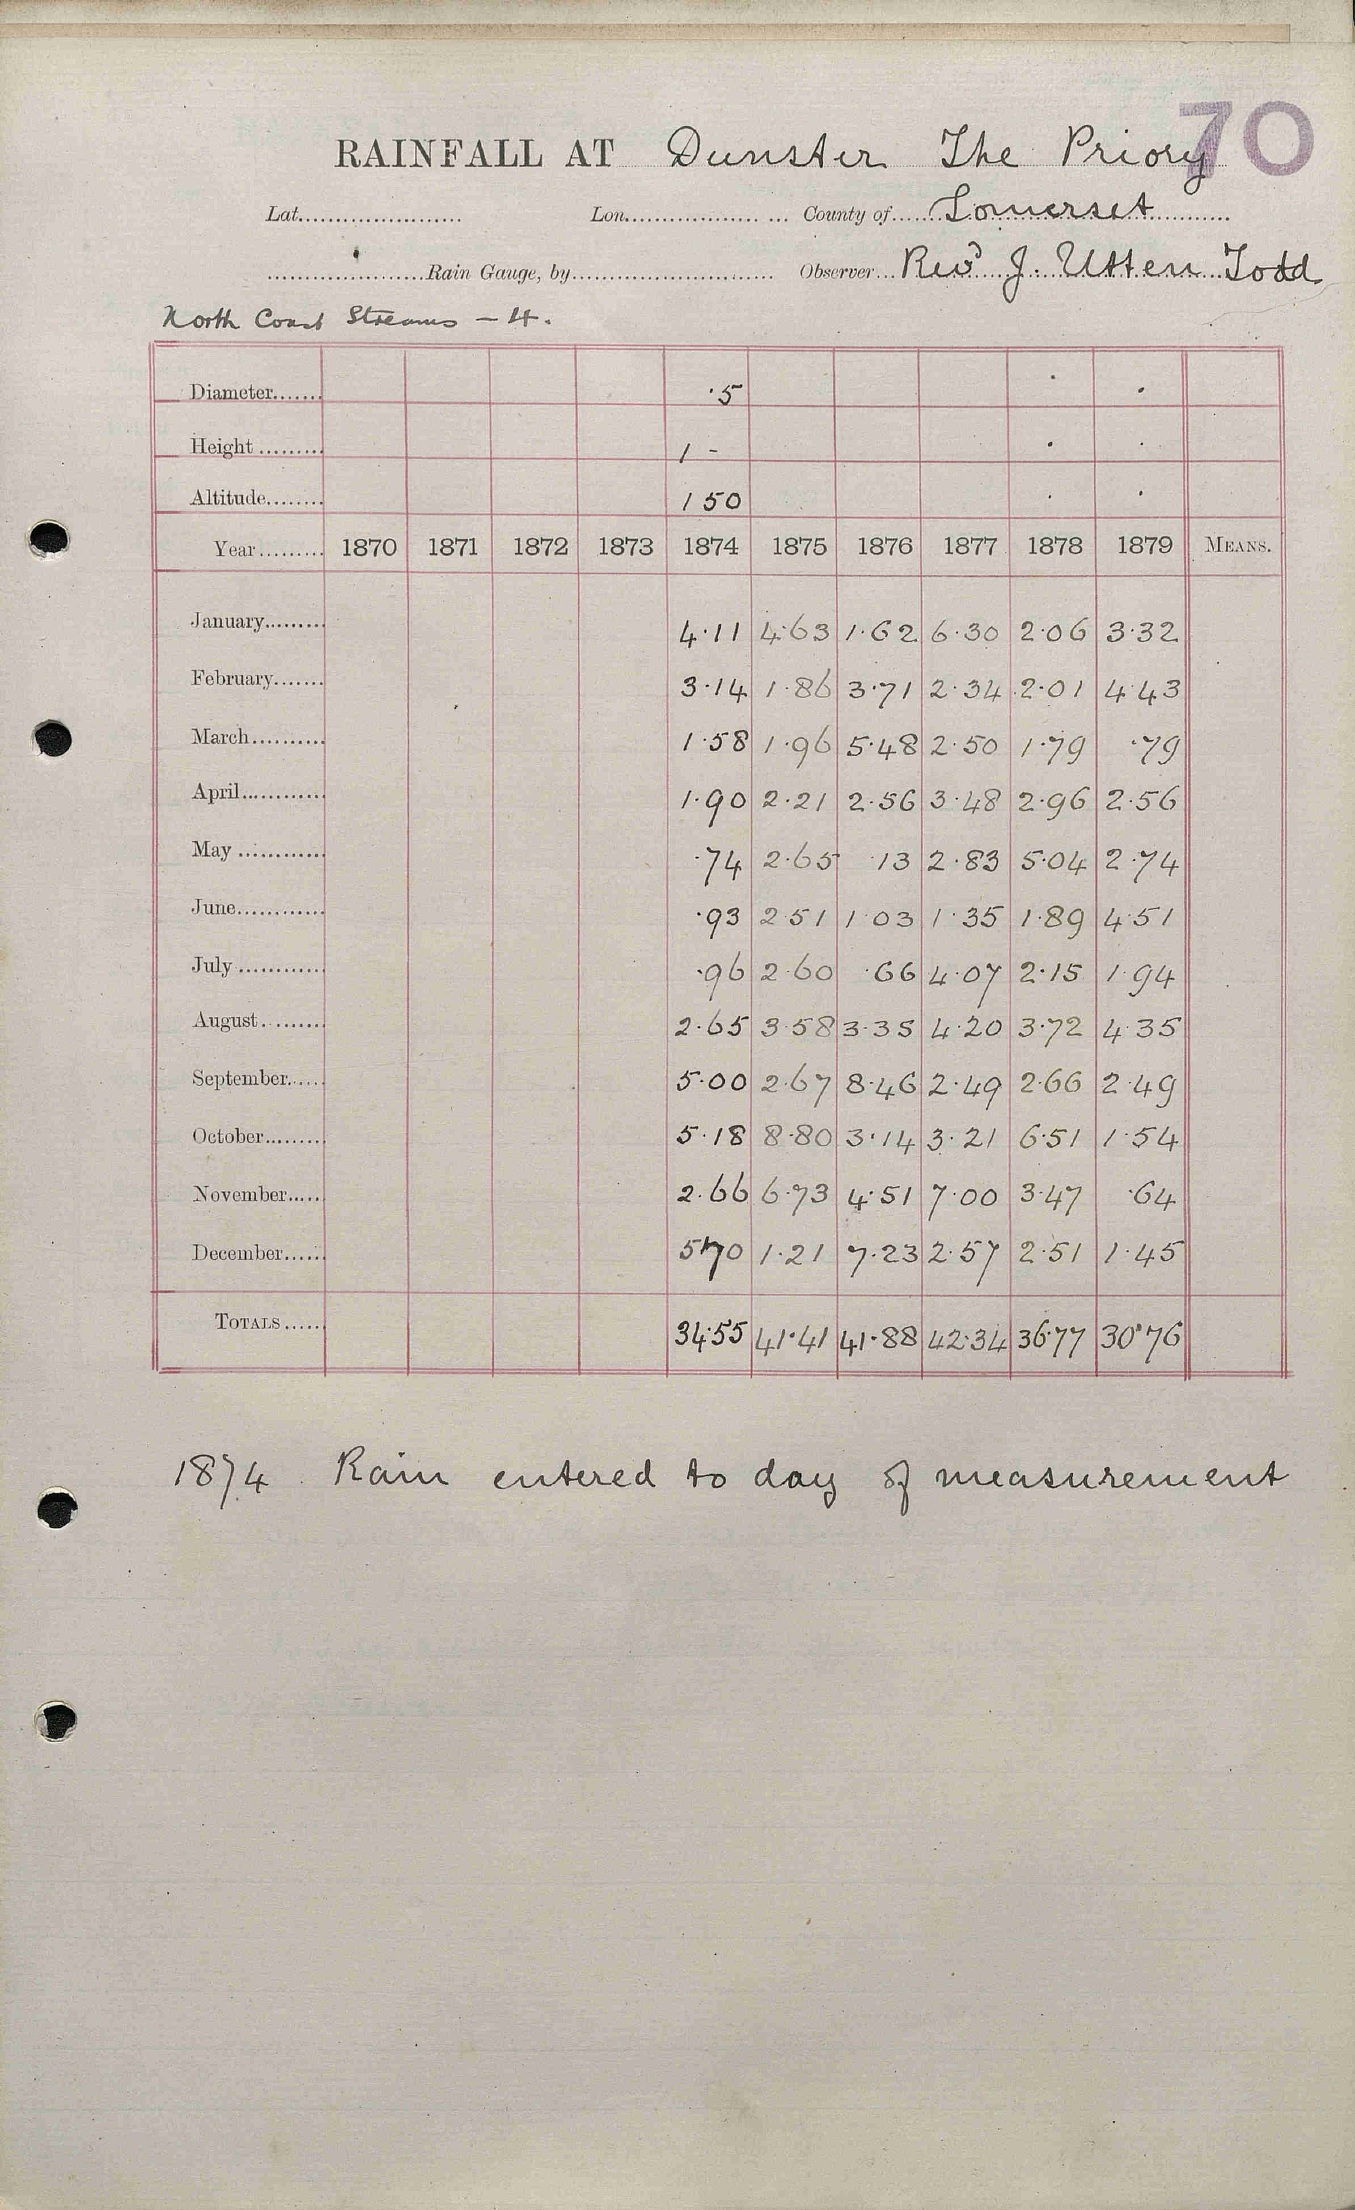 70
RAINFALL AT Dunster The Priory
Lat...................... Lon...................... County of......Somerset..........
.....................Rain Gauge, by........................... Observer...Revd J. Utten Todd
North Coast Streams – 4.
Diameter....... ·5
Height......... 1 -
Altitude........ 150
Year......... 1870 1871 1872 1873 1874 1875 1876 1877 1878 1879 MEANS.
January......... 4·11 4·63 1·62 6·30 2·06 3·32
February....... 3·14 1·86 3·71 2·34 2·01 4·43
March.......... 1·58 1·96 5·48 2·50 1·79 ·79
April............ 1·90 2·21 2·56 3·48 2·96 2·56
May............ ·74 2·65 ·13 2·83 5·04 2·74
June............ ·93 2·51 1·03 1·35 1·89 4·51
July............ ·96 2·60 ·66 4·07 2·15 1·94
August......... 2·65 3·58 3·35 4·20 3·72 4·35
September...... 5·00 2·67 8·46 2·49 2·66 2·49
October......... 5·18 8·80 3·14 3·21 6·51 1·54
November..... 2·66 6·73 4·51 7·00 3·47 ·64
December...... 5·70 1·21 7·23 2·57 2·51 1·45
TOTALS..... 34·55 41·41 41·88 42·34 36·77 30·76
1874 Rain entered to day of measurement